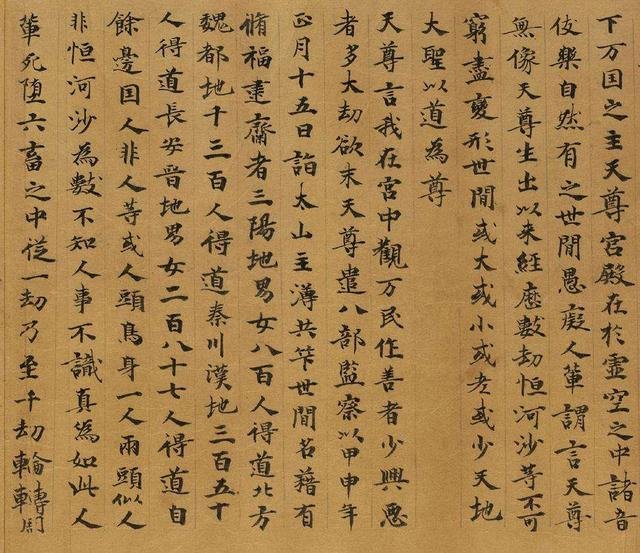 下万国之主天尊宫殿在於虚空之中諸音
伎樂自然有之世間愚癡人輩謂言天尊
無像天尊生出以来經歷數劫恒河沙等不可
窮盡變形世間或大或小或老或少天地
大聖以道為尊
天尊言我在宮中觀万民作善者少興惡
者多大劫欲末天尊遣八部監察以甲申年
正月十五日詣太山主薄共筭世間名藉有
脩福建齋者三陽地男女八百人得道北方
魏都地千三百人得道秦川漢地三百五十
人得道長安晋地男女二百八十七人得道自
餘邊国人非人等或人頭鳥身一人兩頭似人
非恒河沙為數不知人事不識真為如此人
輩死堕六畜之中從一劫乃至千劫輪轉周